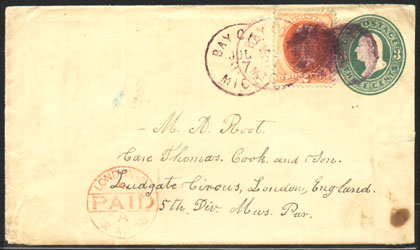 BAY CITY
JUL
7
MICH
POSTAGE
THREE CENTS
- M. A. Root.
Care Thomas. Cook. and Son.
Ludgate Circus, London, England.
5th Div. Mus. Par.
LONDON
PAID
A